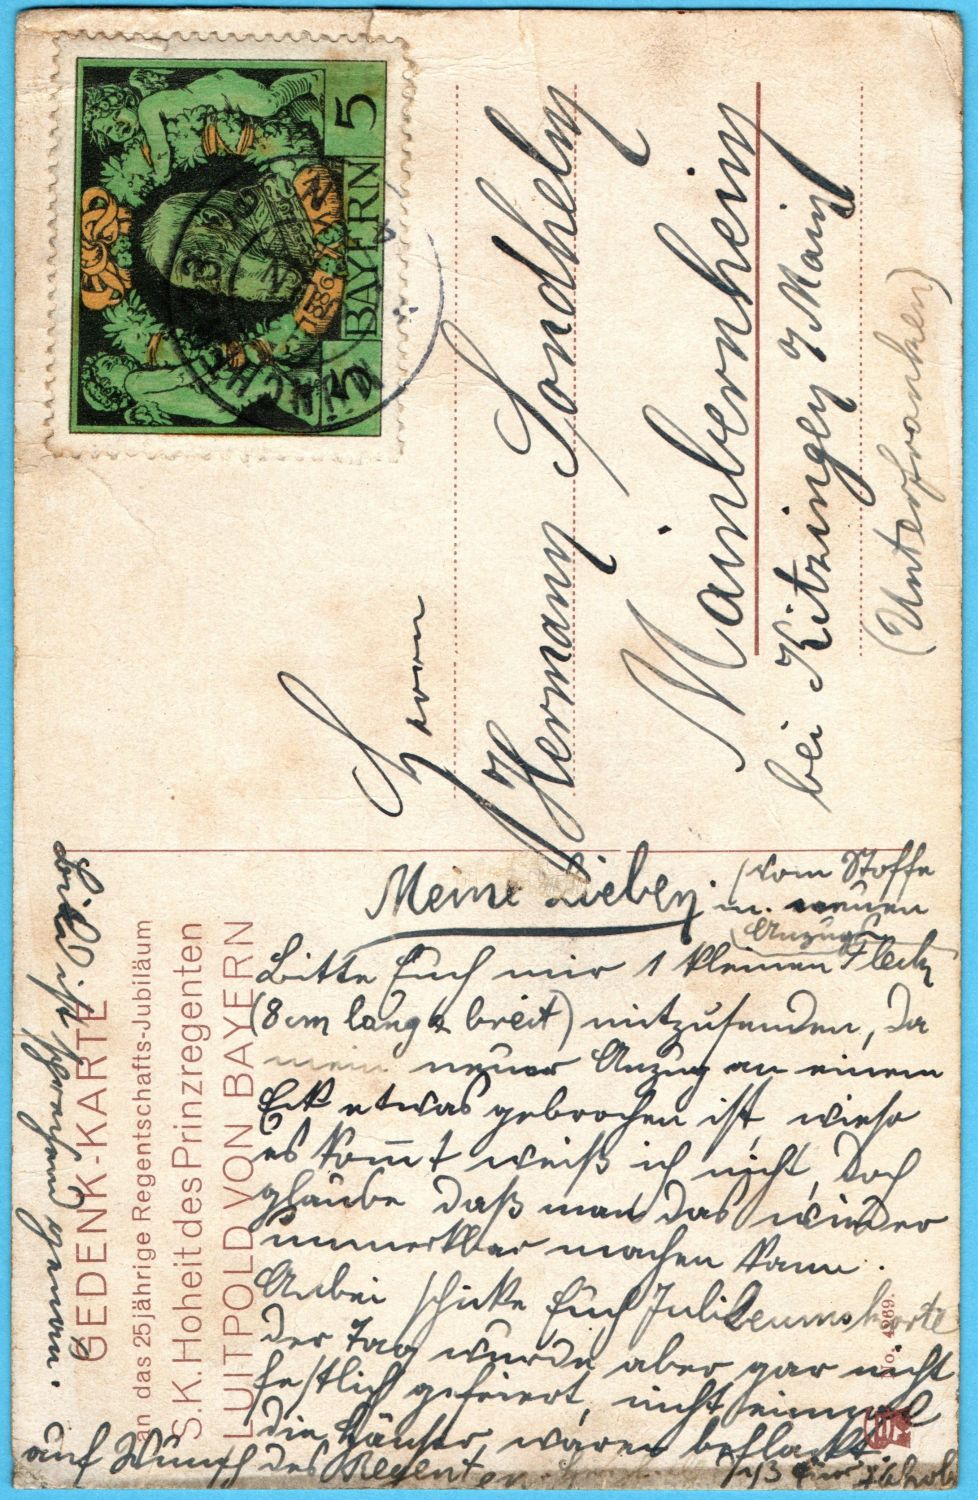 BAYERN 5
1886
MÜNCHEN
Herrn
Hermann Sondhelm
Mainbernheim
bei Kitzingen a/Main
(Unterfranken)
GEDENK-KARTE
an das 25jährige Regentschafts-Jubiläum
S.K. Hoheit des Prinzregenten
LUITPOLD VON BAYERN
No. 4269.
Meine Lieben!
(vom Stoffe
m. neuen
Anzug)
Bitte Euch mir 1 kleinen Fleck
(8 cm lang & breit) mitzusenden, da
mein neuer Anzug an einem
Eck etwas gebrochen ist, wieso
es kom̅t weiß ich nicht, doch
glaube daß man das wieder
unmerkbar machen kann.
Anbei schicke Euch Jubileumskarte
der Tag wurde aber gar nicht
festlich gefeiert, nicht einmal
die Häuser waren beflackt
auf Wunsch des Regenten
Bild ist sprechend genau.